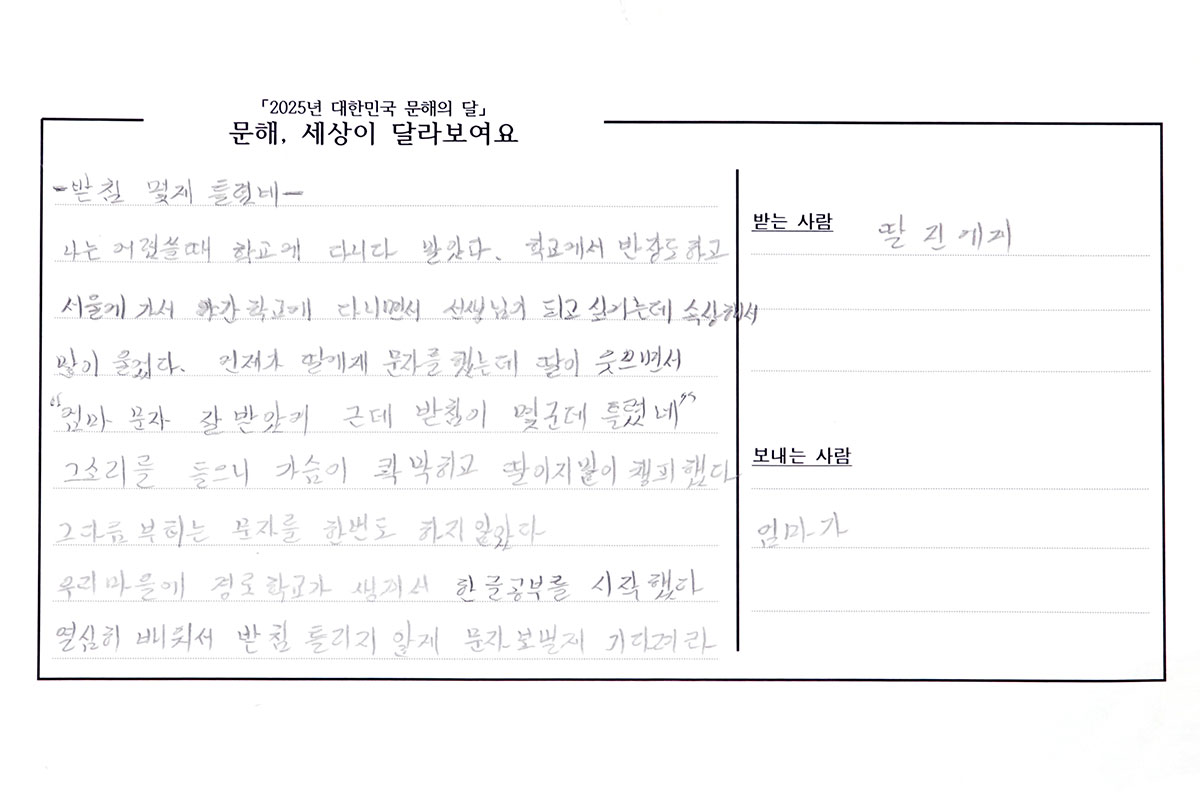 「2025년 대한민국 문해의 달」
문해, 세상이 달라보여요
-받침 몇게 틀렸네-
나는 어렸쓸때 학교에 다니다 말았다. 학교에서 반장도하고
서울게 가서 야간학교에 다니면서 선생님가 되고 싶어는데 속상해서
많이 울겄다. 언제가 딸에게 문자를 했는데 딸이 웃으면서
"엄마 문자 잘 받았어 근데 받침이 몇군데 틀렸네"
그소리를 들으니 가슴이 콱 박히고 딸이지많이 챙피했다
그다음부터는 문자를 한번도 하지않았다
우리마을에 경로학교가 생겨서 한글공부를 시작했다
열심히 배워서 받침 틀리지 않게 문자보낼게 기다려라
받는 사람
딸 진에게
보내는 사람
엄마가